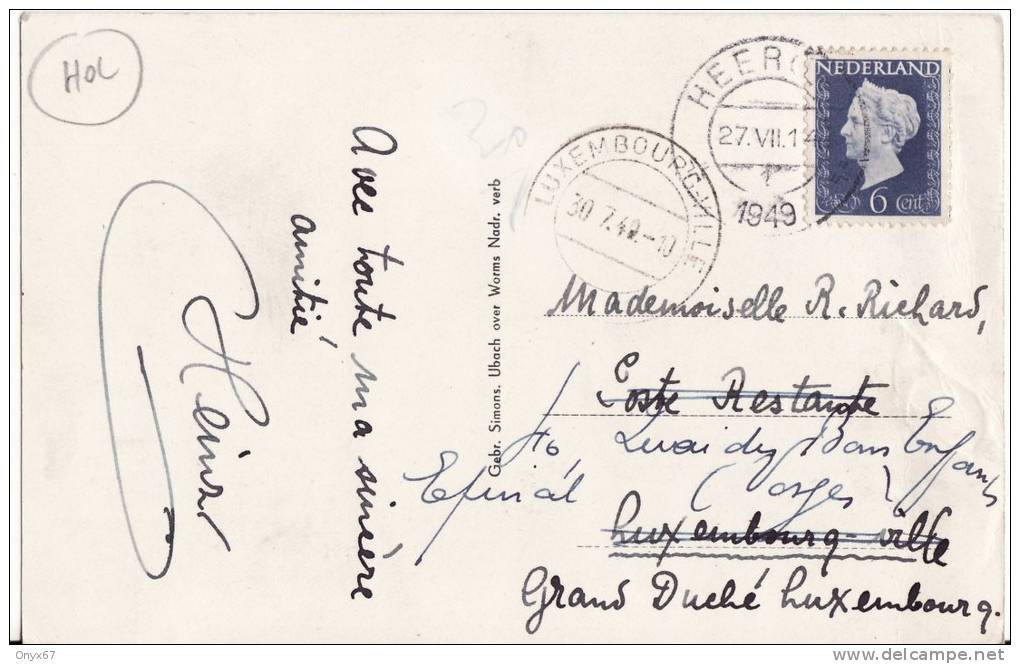 HOL
Avec toute ma sincère
amitié
Heinz
Gebr. Simons. Ubach over Worms Nadr. verb
LUXEMBOURG-VILLE
30.7.49.-10
HEER
27.VII.14
1949
NEDERLAND
6 Cent
Mademoiselle R. Richard,
Poste Restante
Quai des Bons Enfants
Epinal (Vosges)
Luxembourg-ville
Grand Duché Luxembourg.
Onyx67
delcampe.net